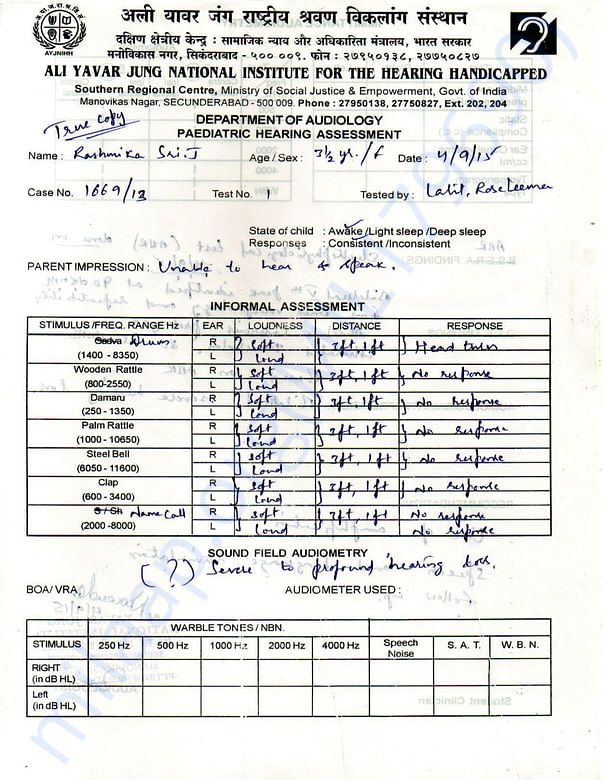 अली यावर जंग राष्ट्रीय श्रवण विकलांग संस्थान
दक्षिण क्षेत्रीय केन्द्र : सामाजिक न्याय और अधिकारिता मंत्रालय, भारत सरकार
मनोविकास नगर, सिकंदराबाद - ५०० ००९. फोन : २७९५०१३८, २७७५०८२७
AYJNIHH
ALI YAVAR JUNG NATIONAL INSTITUTE FOR THE HEARING HANDICAPPED
Southern Regional Centre, Ministry of Social Justice & Empowerment, Govt. of India
Manovikas Nagar, SECUNDERABAD - 500 009. Phone : 27950138, 27750827, Ext. 202, 204
True copy
DEPARTMENT OF AUDIOLOGY
PAEDIATRIC HEARING ASSESSMENT
Name : Rashmika Sri.J Age / Sex : 3½ yr. / f Date : 4/9/15
Case No. 1669/13 Test No. 1 Tested by : Lalit, Roseleema
State of child : Awake/Light sleep /Deep sleep
Responses : Consistent /Inconsistent
PARENT IMPRESSION : Unable to hear & speak.
INFORMAL ASSESSMENT
STIMULUS /FREQ. RANGE Hz EAR LOUDNESS DISTANCE RESPONSE
Sadva Drum R Soft 3ft, 1ft Head turn
(1400 - 8350) L Loud
Wooden Rattle R Soft 3ft, 1ft No response
(800-2550) L Loud
Damaru R Soft 3ft, 1ft No response
(250 - 1350) L Loud
Palm Rattle R Soft 3ft, 1ft No response
(1000 - 10650) L Loud
Steel Bell R Soft 3ft, 1ft No response
(6050 - 11600) L Loud
Clap R Soft 3ft, 1ft No response
(600 - 3400) L Loud
S / Sh Name Call R Soft 3ft, 1ft No response
(2000 -8000) L Loud No response
SOUND FIELD AUDIOMETRY
(?) Severe to profound hearing loss.
BOA/ VRA AUDIOMETER USED :
WARBLE TONES / NBN.
STIMULUS 250 Hz 500 Hz 1000 Hz 2000 Hz 4000 Hz Speech Noise S. A. T. W. B. N.
RIGHT
(in dB HL)
Left
(in dB HL)